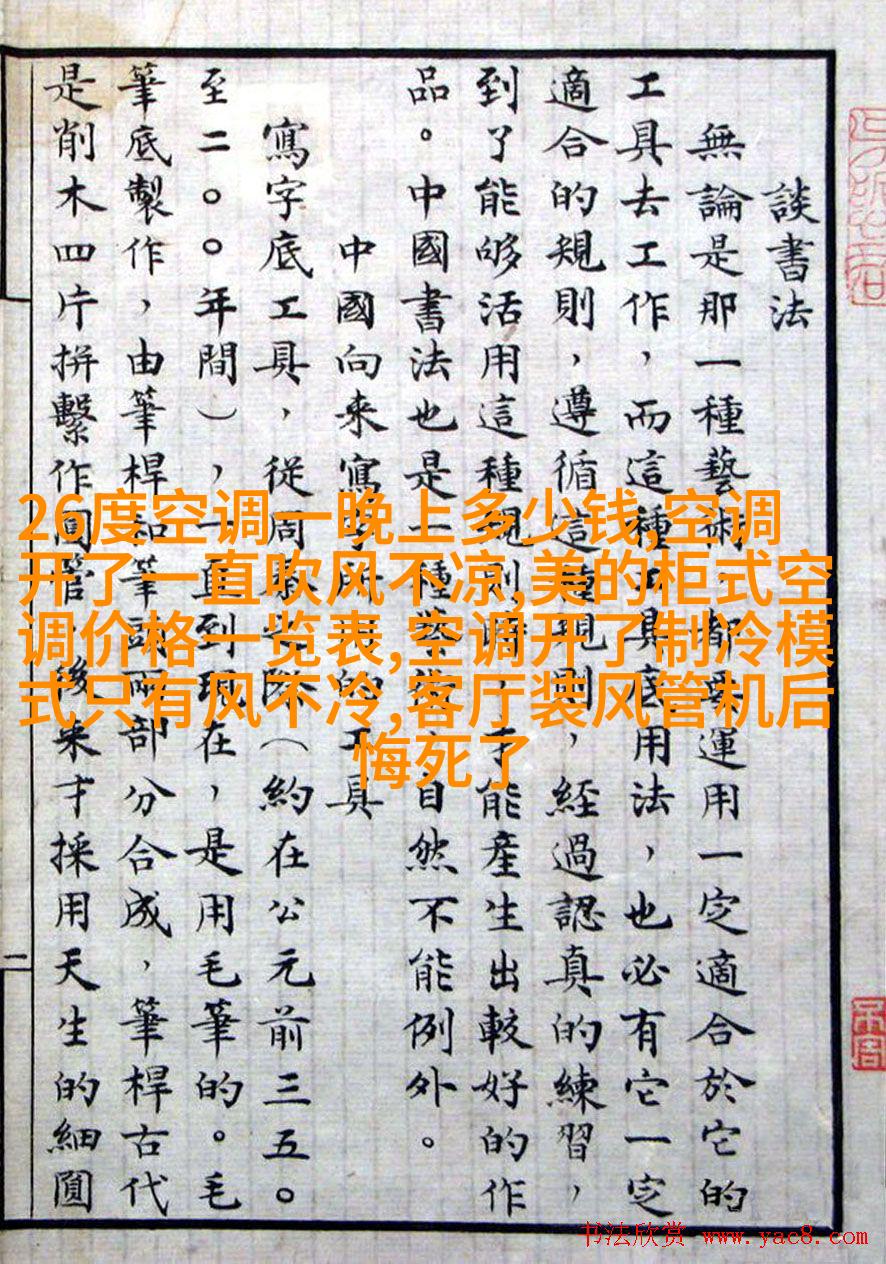 談書法
無論是那一種藝術，都要運用一定適合於它的
工具去工作，而這種工具底用法，也必有它一定
適合的規則，遵循這種規則，經過認真的練習，
到了能够活用這種規則時，才能產生出較好的作
品。中國書法也是一種藝術，自然不能例外。
中國向來寫字所用的工具
寫字底工具，從周秦之際（約在公元前三五。
至二。。年間），一直到現在，是用毛筆的。毛
筆底製作，由筆桿和筆頭兩部分合成，筆桿古代
是削木四片拼繫作圓管，後來才採用天生的細圓
二
26度空调一晚上多少钱,空调
开了一直吹风不凉,美的柜式空
调价格一览表,空调开了制冷模
式只有风不冷,客厅装风管机后
悔死了
书法欣赏 www.yac8.com